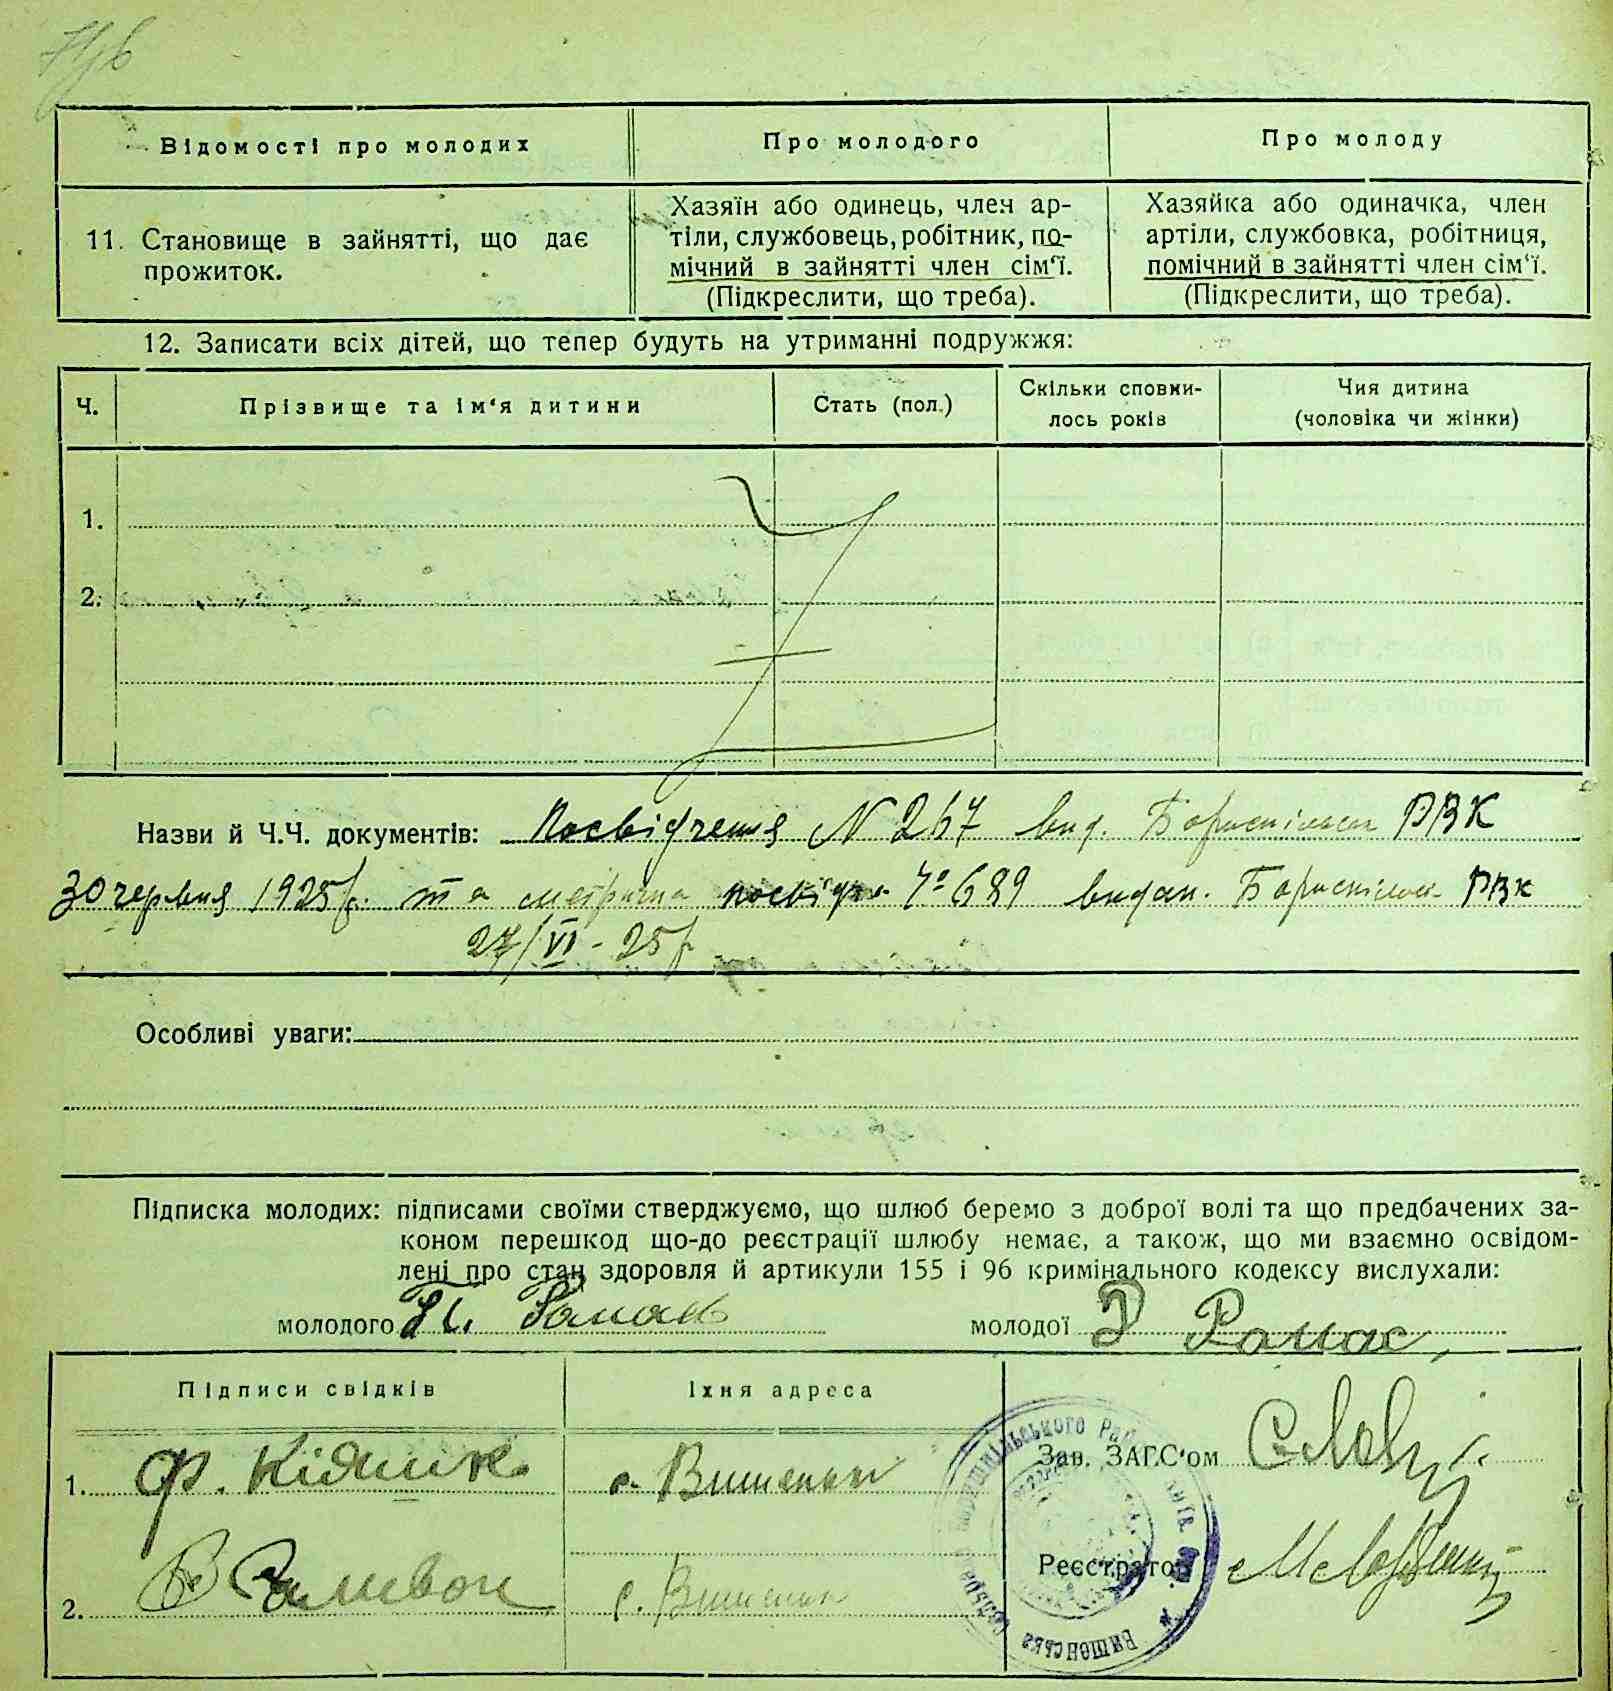 Відомості про молодих
Про молодого
Про молоду
11. Становище в зайнятті, що дає
прожиток.
Хазяїн або одинець, член ар-
тіли, службовець, робітник, по-
мічний в зайнятті член сім'ї.
(Підкреслити, що треба).
Хазяйка або одиначка, член
артіли, службовка, робітниця,
помічний в зайнятті член сім'ї.
(Підкреслити, що треба).
12. Записати всіх дітей, що тепер будуть на утриманні подружжя:
Ч.
Прізвище та ім'я дитини
Стать (пол.)
Скільки сповни-
лось років
Чия дитина
(чоловіка чи жінки)
1.
2.
Назви й Ч.Ч. документів: Посвідчення N 267 вид. РВК
30 червня 1925 р. та метрична 689 видан. РВК
27/VI - 25 р.
Особливі уваги:
Підписка молодих: підписами своїми стверджуємо, що шлюб беремо з доброї волі та що предбачених за-
коном перешкод що-до реєстрації шлюбу немає, а також, що ми взаємно освідом-
лені про стан здоровля й артикули 155 і 96 кримінального кодексу вислухали:
молодого
молодої Ромас
Підписи свідків
Їхня адреса
1. Ф. Кіяшко
с. Вишеньки
Зав. ЗАГС'ом
2.
с. Вишеньки
Реєстратор
Вишенська сельрада